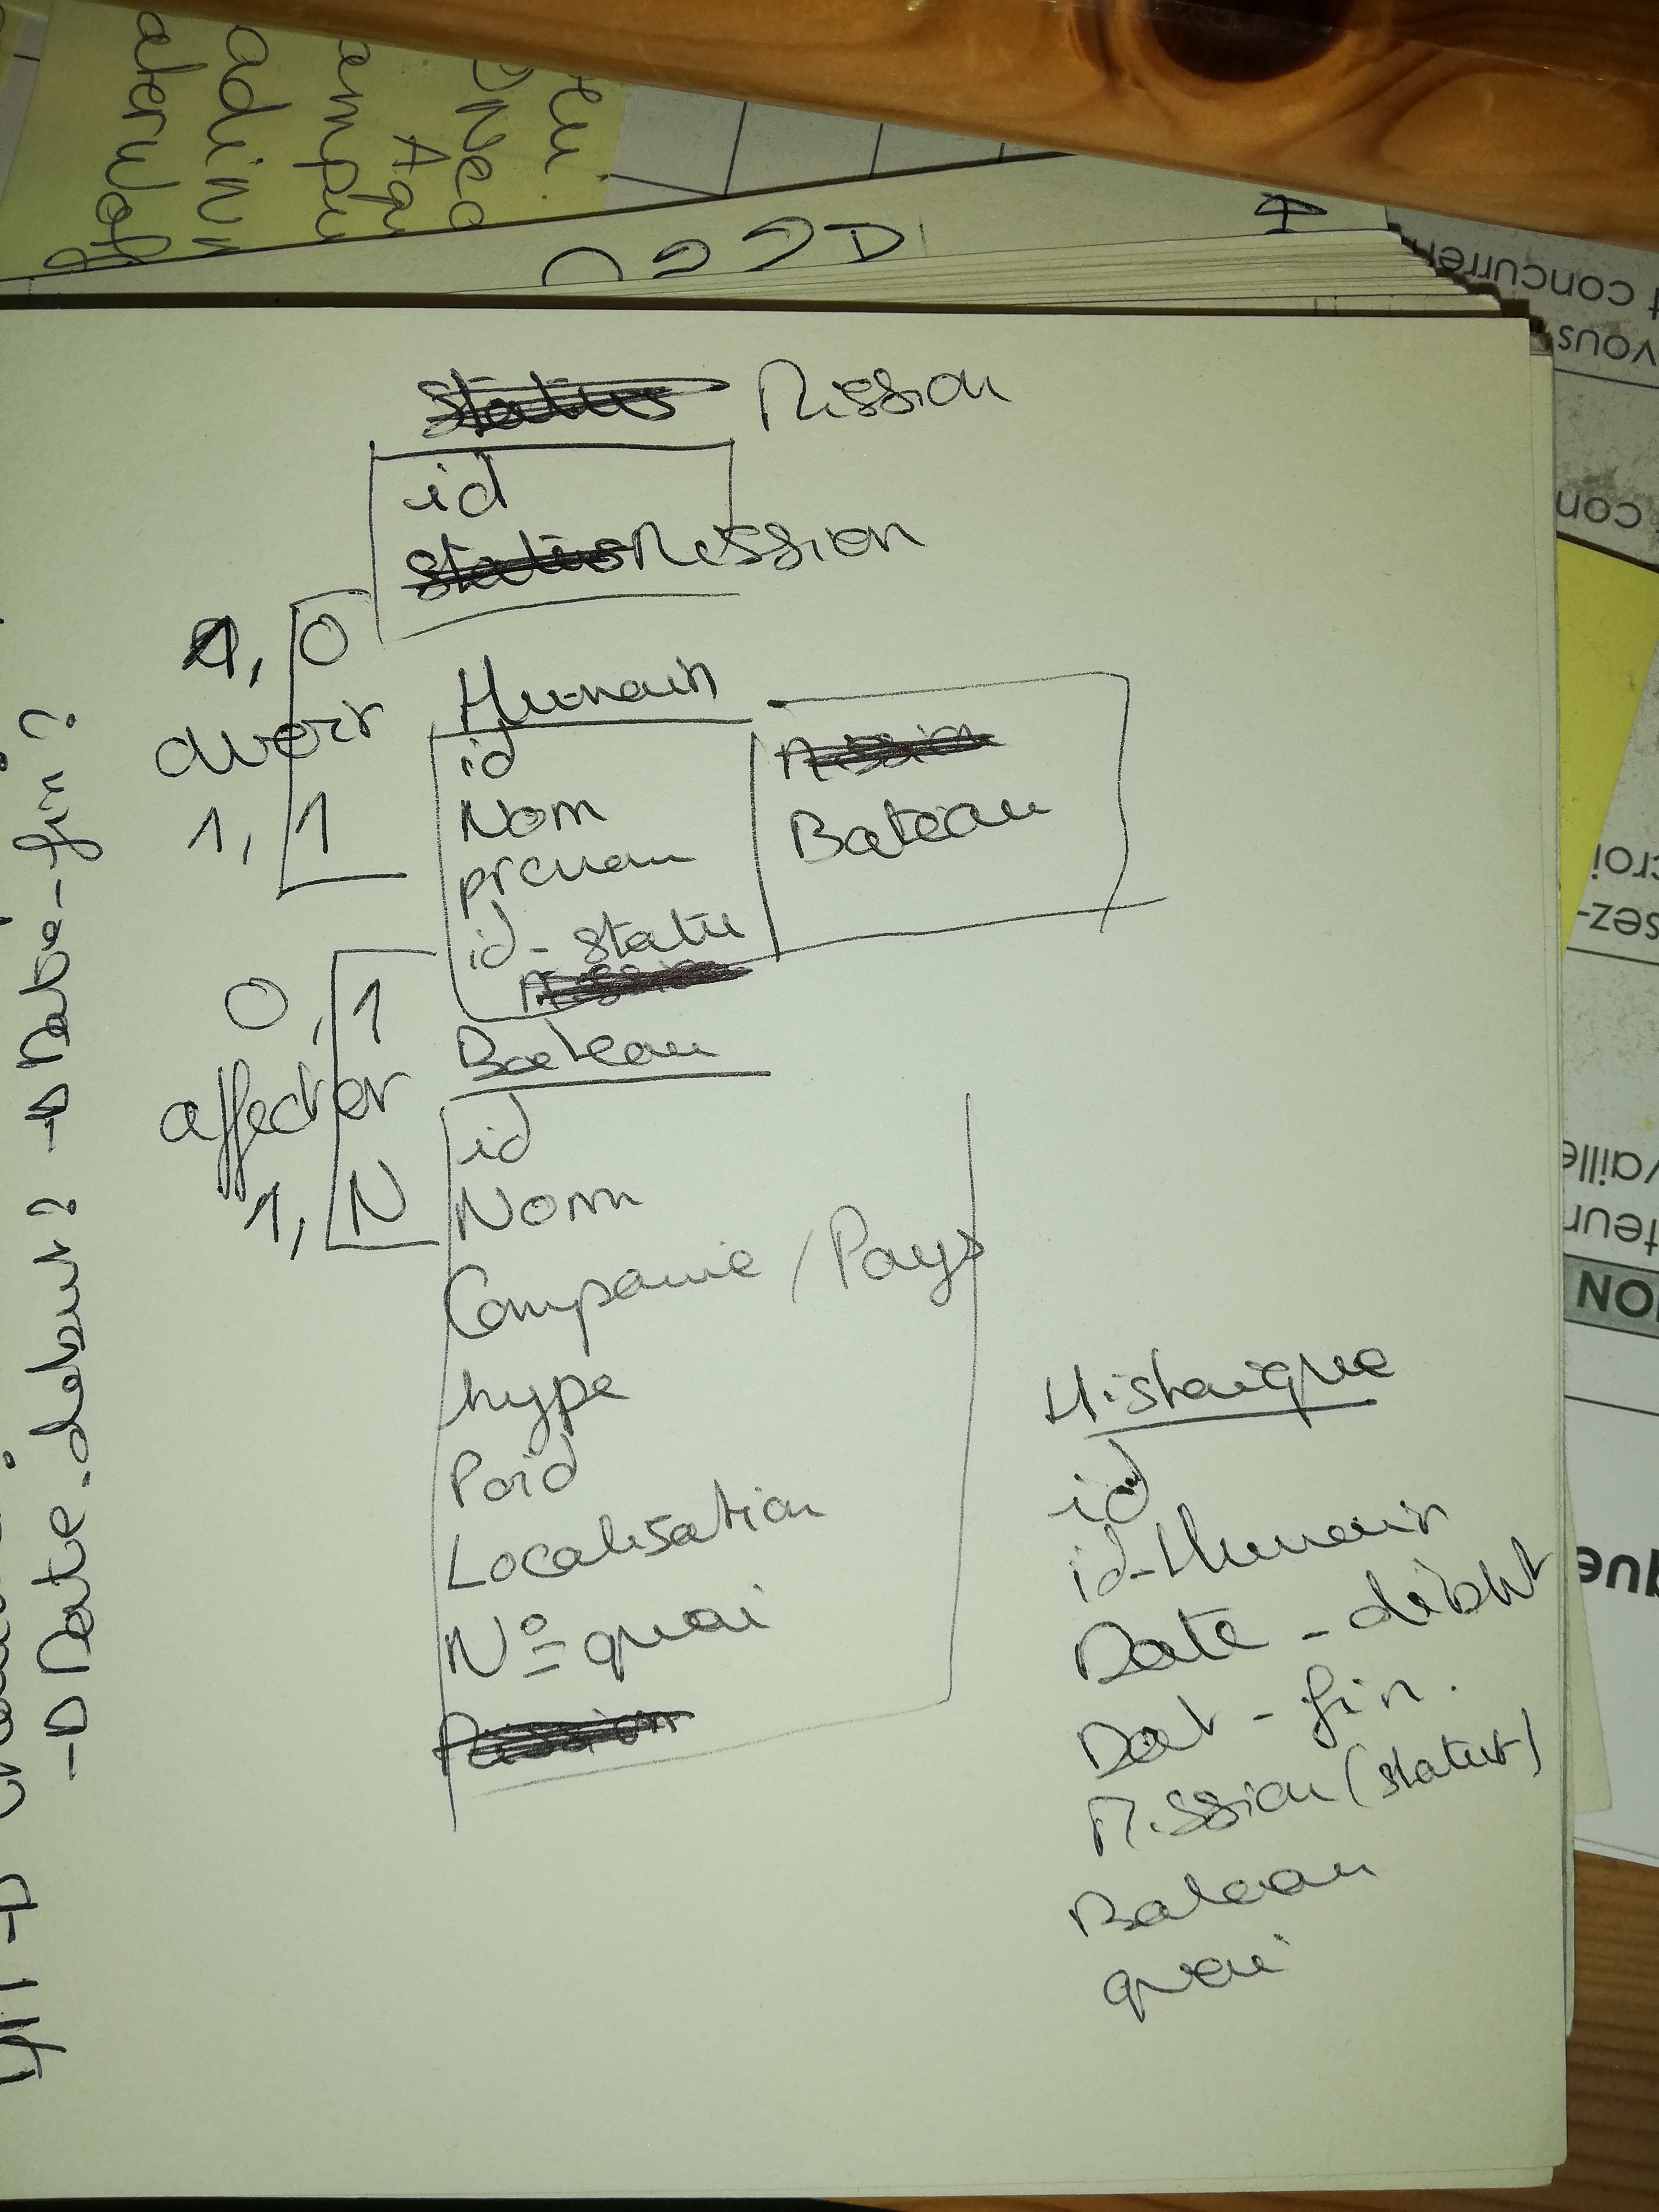 Mission
id
Mission
1, 0
avoir
1, 1
Humain
id
Nom
prenom
id-statu
Bateau
0, 1
affecter
1, N
Bateau
id
Nom
Companie / Pays
type
Poid
Localisation
N° quai
Historique
id
id-Humain
Date - début
Dat - fin.
Mission (statut)
Bateau
quai
-D Date.debut ? -D Date-fin ?
t concurren
vous
con
croi
sez-
vaille
teur
ON
que